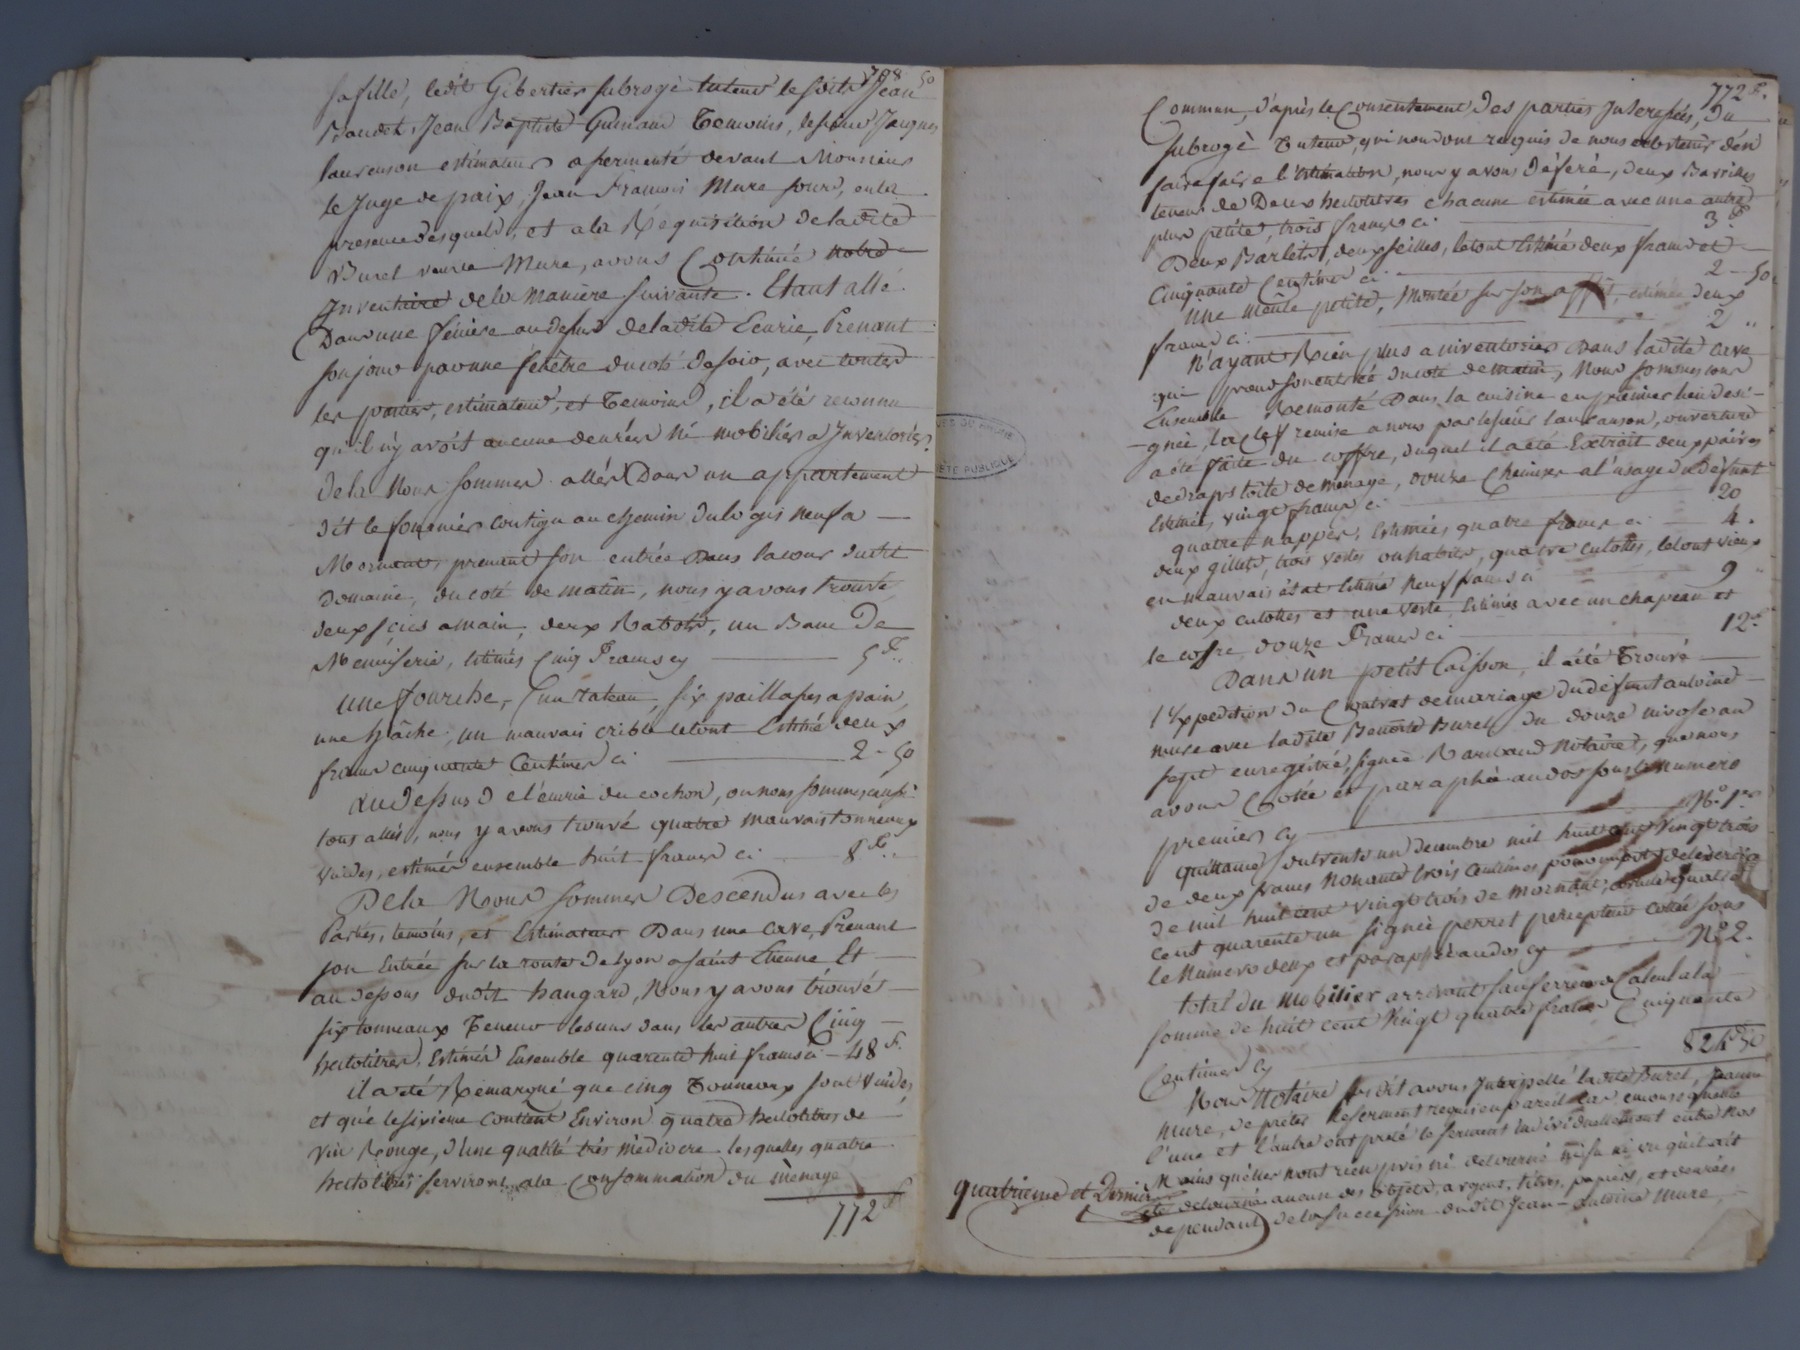 708 50
sa fille, ledit Gibertier subrogé tuteur lesdits Jean
Baudet, Jean Baptiste Guinand Temoins, Jacques
laurenson estimateur assermenté devant Monsieur
le Juge de paix, Jean François Mure sourd, en la
presence desquels, et a la Réquisition de ladite
Buret veuve Mure, avons Continué notre
Inventaire de la Maniere suivante. Etant allé
Dans une fénière au dessus de ladite Ecurie, Prenant
son jour par une fénêtre du coté de soir, avec toutes
les parties, estimateur, et Temoins, il a été reconnu
qu'il n'y avoit aucune denrées ni mobilier a Inventorier.
de la Nous sommes allés Dans un appartement
dit le fournier contigu au chemin du logis neuf a
Mornant prenant son entrée Dans la cour dudit
Domaine, du coté de matin, nous y avons trouvé
deux scies a main, deux Rabots, un Banc De
Menuiserie, Estimés Cinq Francs cy 5 F..
Une fourche, un rateau, six paillasses a pain,
une hâche, un mauvais crible le tout Estimé deux
francs cinquante Centimes ci 2 - 50
Au Dessus de l'écurie du cochon, ou nous sommes aussi
tous allés, nous y avons trouvé quatre mauvais tonneaux
vuides, estimés ensemble huit francs ci 8 F..
De la Nous sommes Descendus avec les
Parties, temoins, et Estimateur Dans une cave, Prenant
son Entrée sur la route de lyon a saint Etienne Et
au dessous dudit hangard, Nous y avons trouvés
six tonneaux Teneur les uns dans les autres Cinq
hectolitres, Estimés Ensemble quarente huit francs ci - 48 F.
il a été Rémarqué que cinq Tonneaux sont vuides
et que le sixieme contient Environ quatre hectolitres de
vin Rouge, d'une qualité très médiocre lesquelles quatre
hectolitres serviront a la Consommation du mènage
772 F
772 F.
Commun, d'après le Consentement des parties Interessées, du
subrogé Tuteur, qui nous ont requis de nous abstenir d'en
faire faire l'Estimation, nous y avons déféré, deux Barriles
teneur de Deux hectolitres chacune estimée avec une autre
plus petite, trois francs ci 3 F
Deux Barlets, deux seilles, le tout Estimé deux francs et
Cinquante Centimes ci 2 - 50
Une meule petite, Montée sur son affut, estimée deux
francs ci 2 "
N'ayant Rien plus a inventorier Dans ladite cave
qui prend son entrée du coté de matin, Nous sommes tous
Ensemble Remonté Dans la cuisine en premier lieu desi-
-gnée, la Clef remise a nous par le sieur laurenson, ouverture
a été faite du coffre, duquel il a été Extrait deux paires
de draps toile de menage, douze Chemises a l'usage du Défunt
Estimés vingt francs ci 20
quatre nappes, Estimées quatre francs ci 4.
deux gillets, trois vestes ou habits, quatre culottes, le tout vieux
en mauvais état Estimé Neuf francs ci 9 "
deux culottes et une veste, Estimés avec un chapeau et
le coffre douze Francs ci 12 F
Dans un petit Caisson, il a été Trouvé
1° Expedition du Contrat de mariage du défunt antoine
mure avec ladite Benoite Buret du douze nivose an
sept enregistré, signée Barbaud Notaire, que nous
avons Cottée et paraphée au dos sous le numero
premier cy N°. 1er
Quittance du trente un decembre mil huit cent vingt trois
de deux francs Nonante trois Centimes pour impôt de l'exercice
de mil huit cent vingt trois de Mornant, article quatre
cent quarente un signée perret percepteur cottée sous
le Numero deux et paraphée au dos cy N° 2.
total du mobilier arrivant sauf erreur de Calcul a la
somme de huit cent vingt quatre francs Cinquante
Centimes cy 824 F 50
Nous Notaire susdit avons Interpellé ladite Buret, Jeanne
Mure, de prêter le serment requis en pareil cas
l'une et l'autre ont preté le serment individuellement entre Nos
Mains qu'elles n'ont rien pris ni detourné ni su ni vu qu'il ait
été detourné aucun des objets, argent, titres, papiers, et denrées
dependant de la succession dudit Jean-antoine Mure,
Quatrieme et Dernier
ETE PUBLIQUE